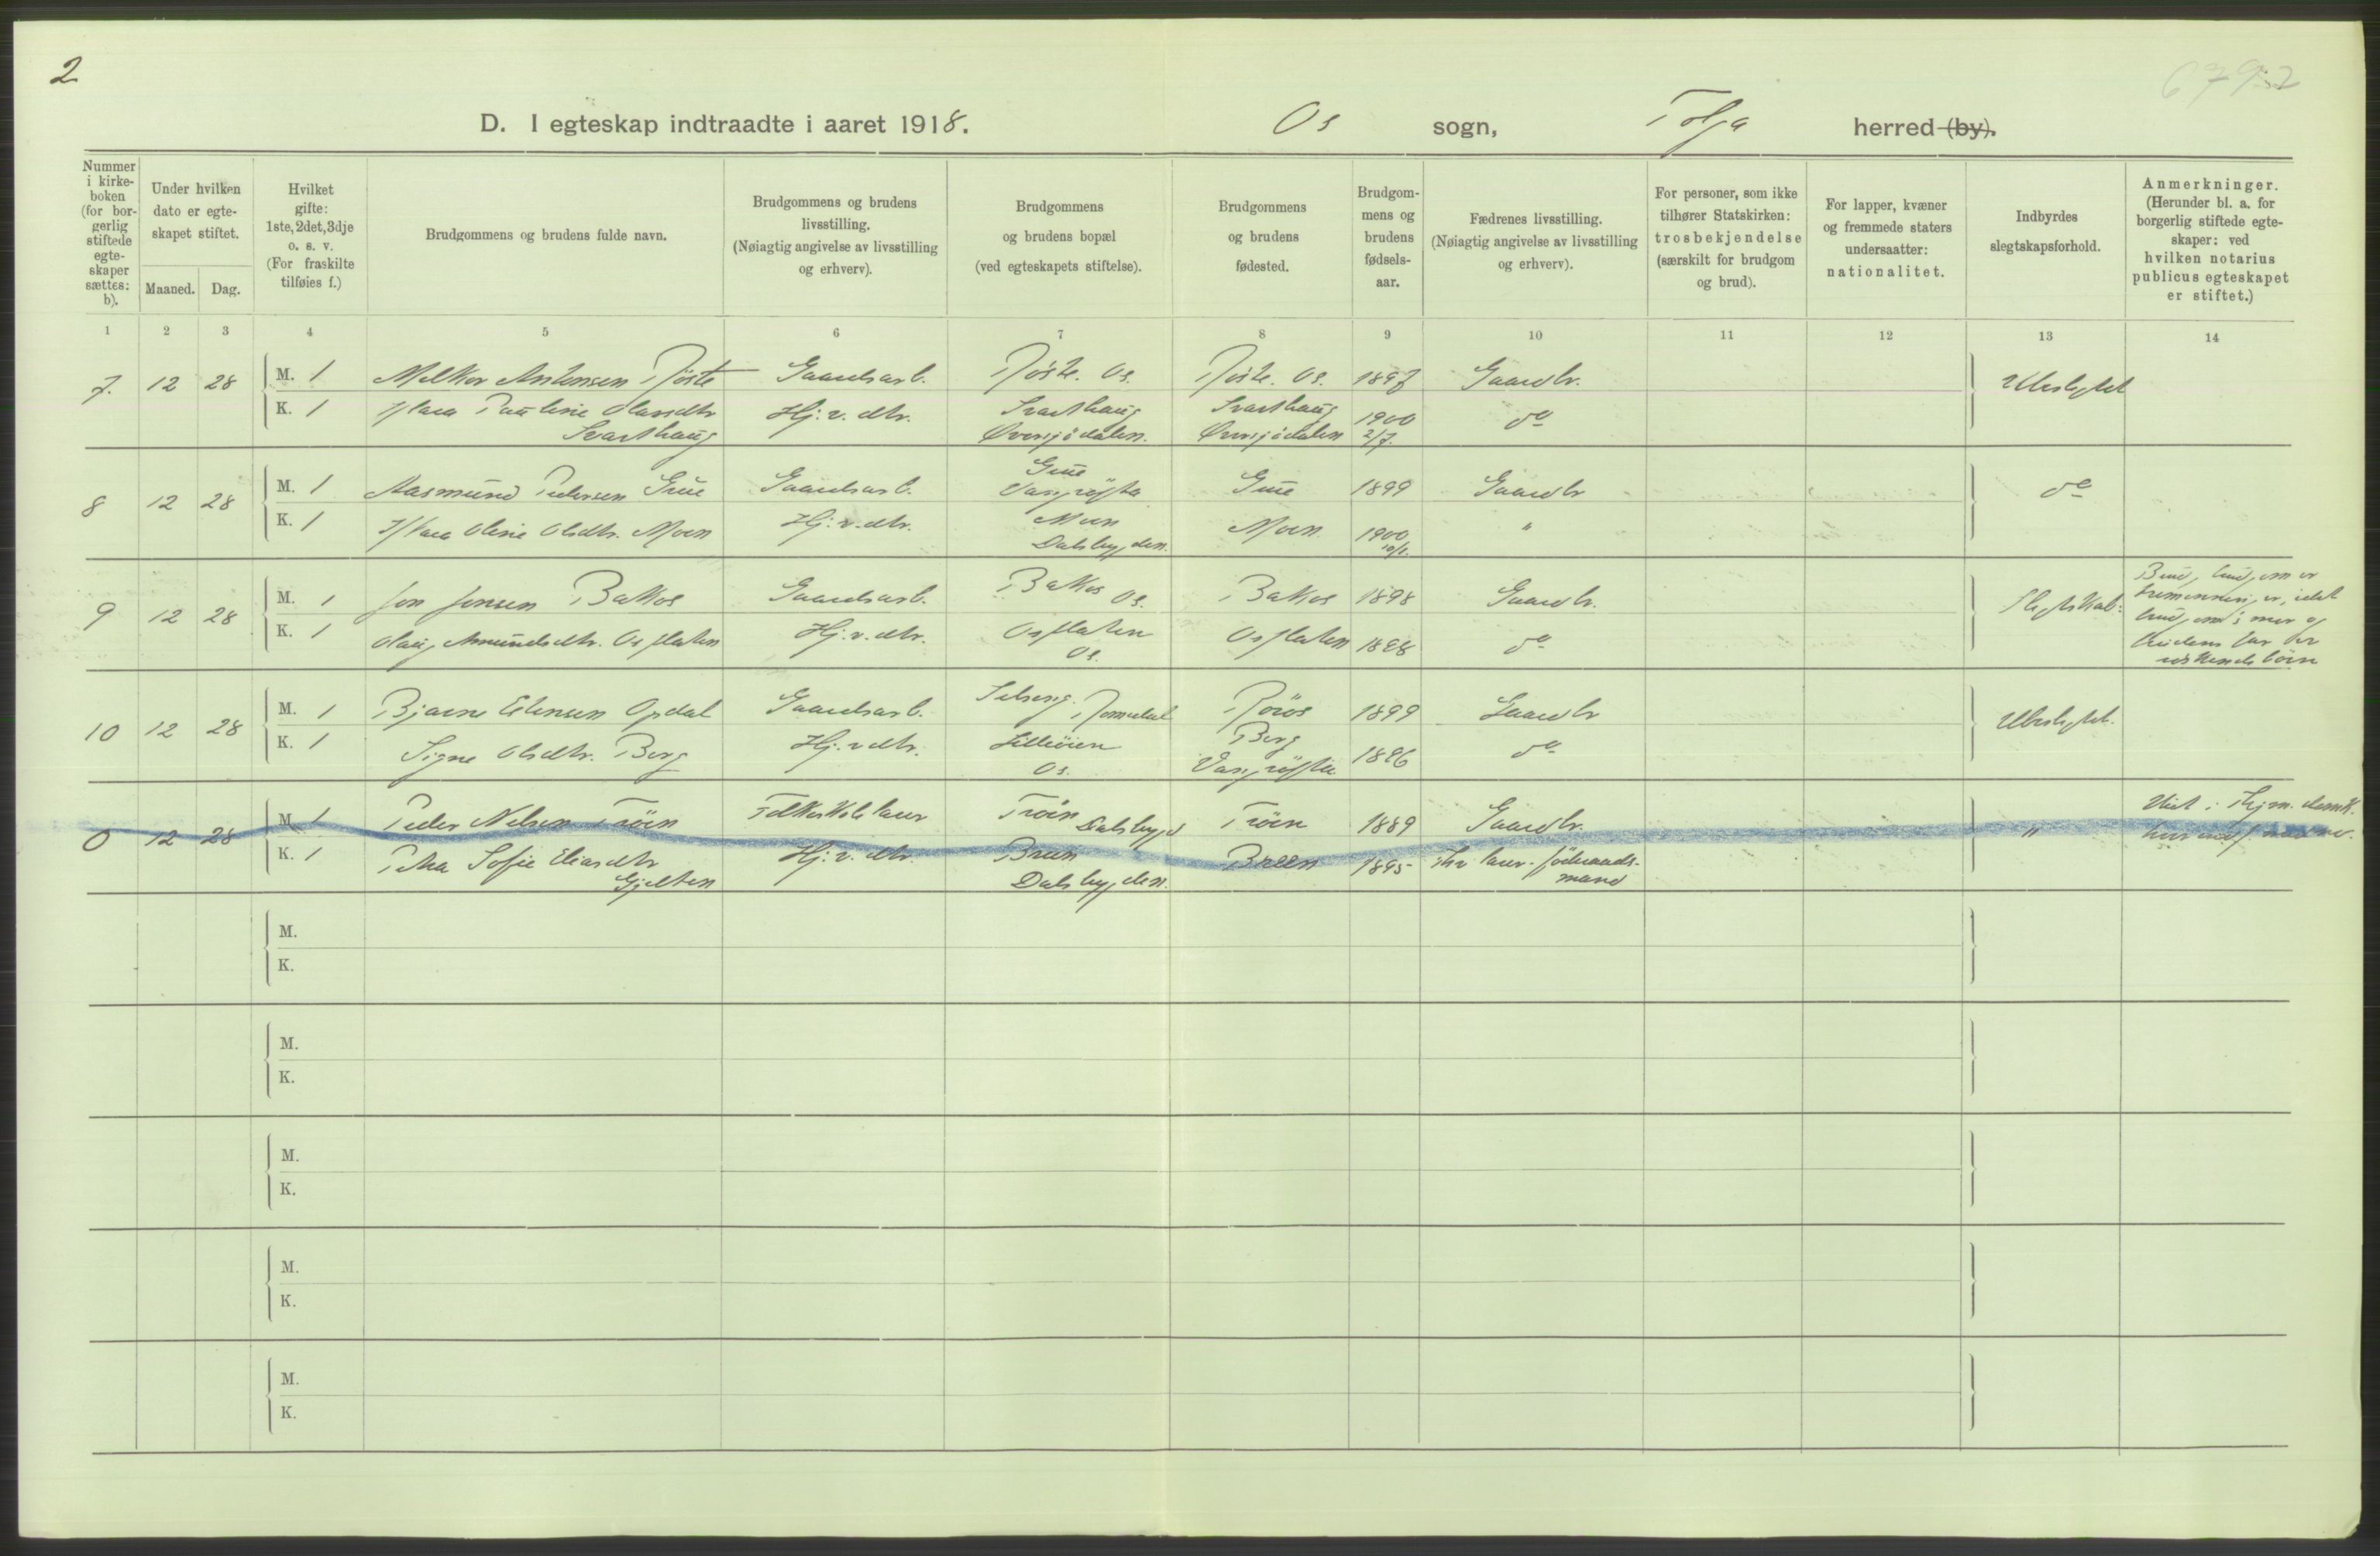 2
6792
D. I egteskap indtraadte i aaret 1918. Os sogn, Tolga herred (by).
Nummer i kirke-boken (for bor-gerlig stiftede egte-skaper sættes: b).
Under hvilken dato er egte-skapet stiftet.
Maaned. Dag.
Hvilket gifte: 1ste, 2det, 3dje o. s. v. (For fraskilte tilføies f.)
Brudgommens og brudens fulde navn.
Brudgommens og brudens livsstilling. (Nøiagtig angivelse av livsstilling og erhverv).
Brudgommens og brudens bopæl (ved egteskapets stiftelse).
Brudgommens og brudens fødested.
Brudgom-mens og brudens fødsels-aar.
Fædrenes livsstilling. (Nøiagtig angivelse av livsstilling og erhverv).
For personer, som ikke tilhører Statskirken: trosbekjendelse (særskilt for brudgom og brud).
For lapper, kvæner og fremmede staters undersaatter: nationalitet.
Indbyrdes slegtskapsforhold.
Anmerkninger. (Herunder bl. a. for borgerlig stiftede egte-skaper: ved hvilken notarius publicus egteskapet er stiftet.)
1 2 3 4 5 6 7 8 9 10 11 12 13 14
7. 12 28 M. 1 Melkor Antonsen Røste Gaardsarb. Røste. Os. Røste. Os. 1897 Gaardbr. Ubeslegtet
K. 1 Klara Pauline Olavsdtr Svarthaug Hj: v. dtr. Svarthaug Øversjødalen. Svarthaug Øversjødalen 1900 2/7. do
8 12 28 M. 1 Aasmund Pedersen Grue Gaardsarb. Grue Vangrøfta Grue 1899 Gaardbr do
K. 1 Klara Oline Olsdtr. Moen Hj: v. dtr. Moen Dalsbygden. Moen 1900 10/1. "
9 12 28 M. 1 Jon Jonsen Bakos Gaardsarb. Bakos Os. Bakos 1898 Gaardbr. Slegtskab: Brud, brudgom er tremenninger, idet brudgom's mor og brudens far er søskendebørn
K. 1 Olaug Amundsdtr. Osplaten Hj: v. dtr. Osplaten Os. Osplaten 1898 do
10 12 28 M. 1 Bjarne Estensen Opdal Gaardsarb. Romedal Røros 1899 Gaardbr Ubeslegtet.
K. 1 Signe Olsdtr. Berg Hj: v dtr. Lilleøien Os. Berg Vangrøften 1896 do
0 12 28 M. 1 Peder Nilsen Trøen Folkeskolelærer Trøen Dalsbygd Trøen 1889 Gaardbr. "
K. 1 Petra Sofie Eliasdtr Gjelten Hj: v. dtr. Breen Dalsbygden. Breen 1895 fhv lærer. føderaads-mand
M.
K.
M.
K.
M.
K.
M.
K.
M.
K.